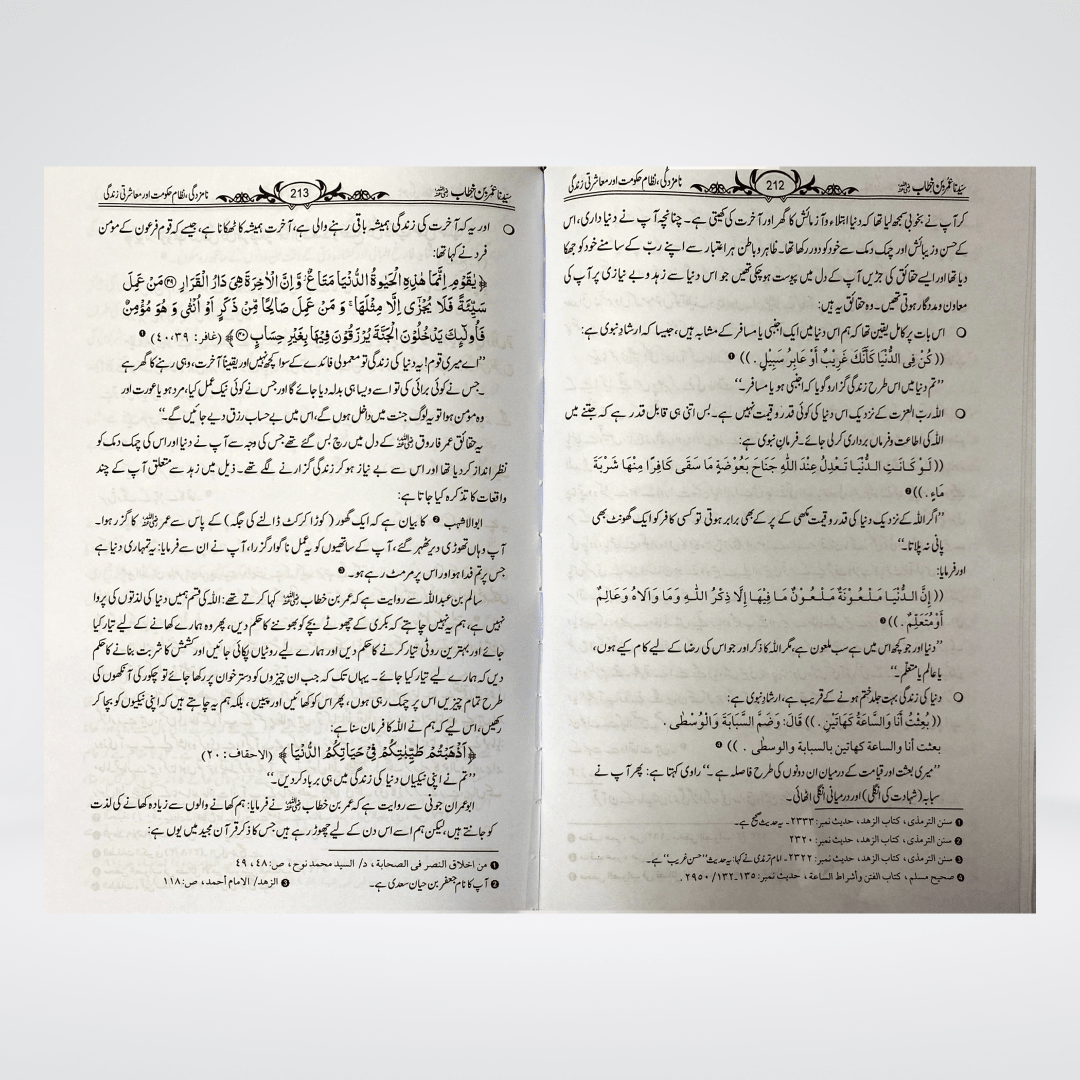 سیّدنا عمر بن خطاب رضی اللہ عنہ 212 نامزدگی، نظام حکومت اور معاشرتی زندگی
کر آپ نے بخوبی سمجھ لیا تھا کہ دنیا ابتلاء و آزمائش کا گھر اور آخرت کی کھیتی ہے۔ چنانچہ آپ نے دنیا داری، اس
کے حسن و زیبائش اور چمک دمک سے خود کو دور رکھا تھا۔ ظاہر و باطن ہر اعتبار سے اپنے ربّ کے سامنے خود کو جھکا
دیا تھا اور ایسے حقائق کی جڑیں آپ کے دل میں پیوست ہوچکی تھیں جو اس دنیا سے زہد و بے نیازی پر آپ کی
معاون و مددگار ہوتی تھیں۔ وہ حقائق یہ ہیں:
○ اس بات پر کامل یقین تھا کہ ہم اس دنیا میں ایک اجنبی یا مسافر کے مشابہ ہیں، جیسا کہ ارشاد نبوی ہے:
((كُنْ فِى الدُّنْيَا كَأَنَّكَ غَرِيْبٌ أَوْ عَابِرُ سَبِيْلٍ .)) ❶
’’تم دنیا میں اس طرح زندگی گزارو گویا کہ اجنبی ہو یا مسافر۔‘‘
○ اللہ ربّ العزت کے نزدیک اس دنیا کی کوئی قدر و قیمت نہیں ہے۔ بس اتنی ہی قابل قدر ہے کہ جتنے میں
اللہ کی اطاعت و فرماں برداری کر لی جائے۔ فرمانِ نبوی ہے:
((لَوْ كَانَتِ الدُّنْيَا تَعْدِلُ عِنْدَ اللّٰهِ جَنَاحَ بَعُوْضَةٍ مَا سَقَى كَافِرًا مِنْهَا شَرْبَةَ
مَاءٍ .)) ❷
’’اگر اللہ کے نزدیک دنیا کی قدر و قیمت مکھی کے پر کے بھی برابر ہوتی تو کسی کافر کو ایک گھونٹ بھی
پانی نہ پلاتا۔‘‘
اور فرمایا:
((إِنَّ الدُّنْيَا مَلْعُوْنَةٌ مَلْعُوْنٌ مَا فِيْهَا إِلَّا ذِكْرُ اللّٰهِ وَمَا وَالَاهُ وَعَالِمٌ
أَوْ مُتَعَلِّمٌ .)) ❸
’’دنیا اور جو کچھ اس میں ہے سب ملعون ہے، مگر اللہ کا ذکر اور جو اس کی رضا کے لیے کام کیے ہوں،
یا عالم یا متعلّم۔‘‘
○ دنیا کی زندگی بہت جلد ختم ہونے کے قریب ہے، ارشاد نبوی ہے:
((بُعِثْتُ أَنَا وَالسَّاعَةُ كَهَاتَيْنِ .)) قَالَ: وَضَمَّ السَّبَابَةَ وَالْوُسْطٰى .
بعثت أنا والساعة كهاتين بالسبابة والوسطٰى . )) ❹
’’میری بعثت اور قیامت کے درمیان ان دونوں کی طرح فاصلہ ہے۔‘‘ راوی کہتا ہے: پھر آپ نے
سبابہ (شہادت کی انگلی) اور درمیانی انگلی اٹھائی۔
❶ سنن الترمذی، کتاب الزهد، حدیث نمبر: ٢٣٣٣۔ یہ حدیث صحیح ہے۔
❷ سنن الترمذی، کتاب الزهد، حدیث نمبر: ٢٣٢٠
❸ سنن الترمذی، کتاب الزهد، حدیث نمبر: ٢٣٢٢۔ امام ترمذی نے کہا: یہ حدیث ’’حسن غریب‘‘ ہے۔
❹ صحیح مسلم، کتاب الفتن وأشراط الساعة، حدیث نمبر: ١٣٥۔١٣٢/ ٢٩٥٠ .
سیّدنا عمر بن خطاب رضی اللہ عنہ 213 نامزدگی، نظام حکومت اور معاشرتی زندگی
○ اور یہ کہ آخرت کی زندگی ہمیشہ باقی رہنے والی ہے، آخرت ہمیشہ کا ٹھکانا ہے، جیسے کہ قوم فرعون کے مومن
فرد نے کہا تھا:
﴿يٰقَوْمِ اِنَّمَا هٰذِهِ الْحَيٰوةُ الدُّنْيَا مَتَاعٌ ۫ وَّاِنَّ الْاٰخِرَةَ هِيَ دَارُ الْقَرَارِ ۝٣٩ مَنْ عَمِلَ
سَيِّئَةً فَلَا يُجْزٰٓى اِلَّا مِثْلَهَا ۚ وَ مَنْ عَمِلَ صَالِحًا مِّنْ ذَكَرٍ اَوْ اُنْثٰى وَ هُوَ مُؤْمِنٌ
فَاُولٰٓئِكَ يَدْخُلُوْنَ الْجَنَّةَ يُرْزَقُوْنَ فِيْهَا بِغَيْرِ حِسَابٍ ۝٤٠﴾ (غافر: ٣٩،٤٠) ❶
’’اے میری قوم! یہ دنیا کی زندگی تو معمولی فائدے کے سوا کچھ نہیں اور یقیناً آخرت، وہی رہنے کا گھر ہے
۔جس نے کوئی برائی کی تو اسے ویسا ہی بدلہ دیا جائے گا اور جس نے کوئی نیک عمل کیا، مرد ہو یا عورت اور
وہ مؤمن ہوا تو یہ لوگ جنت میں داخل ہوں گے، اس میں بے حساب رزق دیے جائیں گے۔‘‘
یہ حقائق عمر فاروق رضی اللہ عنہ کے دل میں رچ بس گئے تھے جس کی وجہ سے آپ نے دنیا اور اس کی چمک دمک کو
نظر انداز کردیا تھا اور اس سے بے نیاز ہو کر زندگی گزارنے لگے تھے۔ ذیل میں زہد سے متعلق آپ کے چند
واقعات کا تذکرہ کیا جاتا ہے:
ابوالاشہب ❷ کا بیان ہے کہ ایک گھور (کوڑا کرکٹ ڈالنے کی جگہ) کے پاس سے عمر رضی اللہ عنہ کا گزر ہوا۔
آپ وہاں تھوڑی دیر ٹھہر گئے، آپ کے ساتھیوں کو یہ عمل ناگوار گزرا، آپ نے ان سے فرمایا: یہ تمہاری دنیا ہے
جس پر تم فدا ہو اور اس پر مرمٹ رہے ہو۔ ❸
سالم بن عبداللہ سے روایت ہے کہ عمر بن خطاب رضی اللہ عنہ کہا کرتے تھے: اللہ کی قسم ہمیں دنیا کی لذتوں کی پروا
نہیں ہے، ہم یہ نہیں چاہتے کہ بکری کے چھوٹے بچے کو بھوننے کا حکم دیں، پھر وہ ہمارے کھانے کے لیے تیار کیا
جائے اور بہترین روٹی تیار کرنے کا حکم دیں اور ہمارے لیے روٹیاں پکائی جائیں اور کشمش کا شربت بنانے کا حکم
دیں کہ ہمارے لیے تیار کیا جائے۔ یہاں تک کہ جب ان چیزوں کو دسترخوان پر رکھا جائے تو چکور کی آنکھوں کی
طرح تمام چیزیں اس پر چمک رہی ہوں، پھر اس کو کھائیں اور پییں، بلکہ ہم یہ چاہتے ہیں کہ اپنی نیکیوں کو بچا کر
رکھیں، اس لیے کہ ہم نے اللہ کا فرمان سنا ہے:
﴿اَذْهَبْتُمْ طَيِّبٰتِكُمْ فِيْ حَيَاتِكُمُ الدُّنْيَا﴾ (الاحقاف: ٢٠)
’’تم نے اپنی نیکیاں دنیا کی زندگی میں ہی برباد کردیں۔‘‘
ابوعمران جونی سے روایت ہے کہ عمر بن خطاب رضی اللہ عنہ نے فرمایا: ہم کھانے والوں سے زیادہ کھانے کی لذت
کو جانتے ہیں، لیکن ہم اسے اس دن کے لیے چھوڑ رہے ہیں جس کا ذکر قرآن مجید میں یوں ہے:
❶ من اخلاق النصر فی الصحابة، د/ السید محمد نوح، ص: ٤٨، ٤٩
❷ آپ کا نام جعفر بن حیان سعدی ہے۔ ❸ الزهد/ الامام أحمد، ص: ١١٨